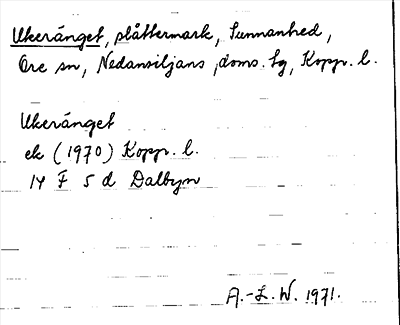 Ukeränget, slåttermark, Sunnanhed,
Ore sn, Nedansiljans doms. tg, Kopp. l.
Ukeränget
ek (1970) Kopp. l.
14 F 5 d Dalbyn
A.-L. W. 1971.